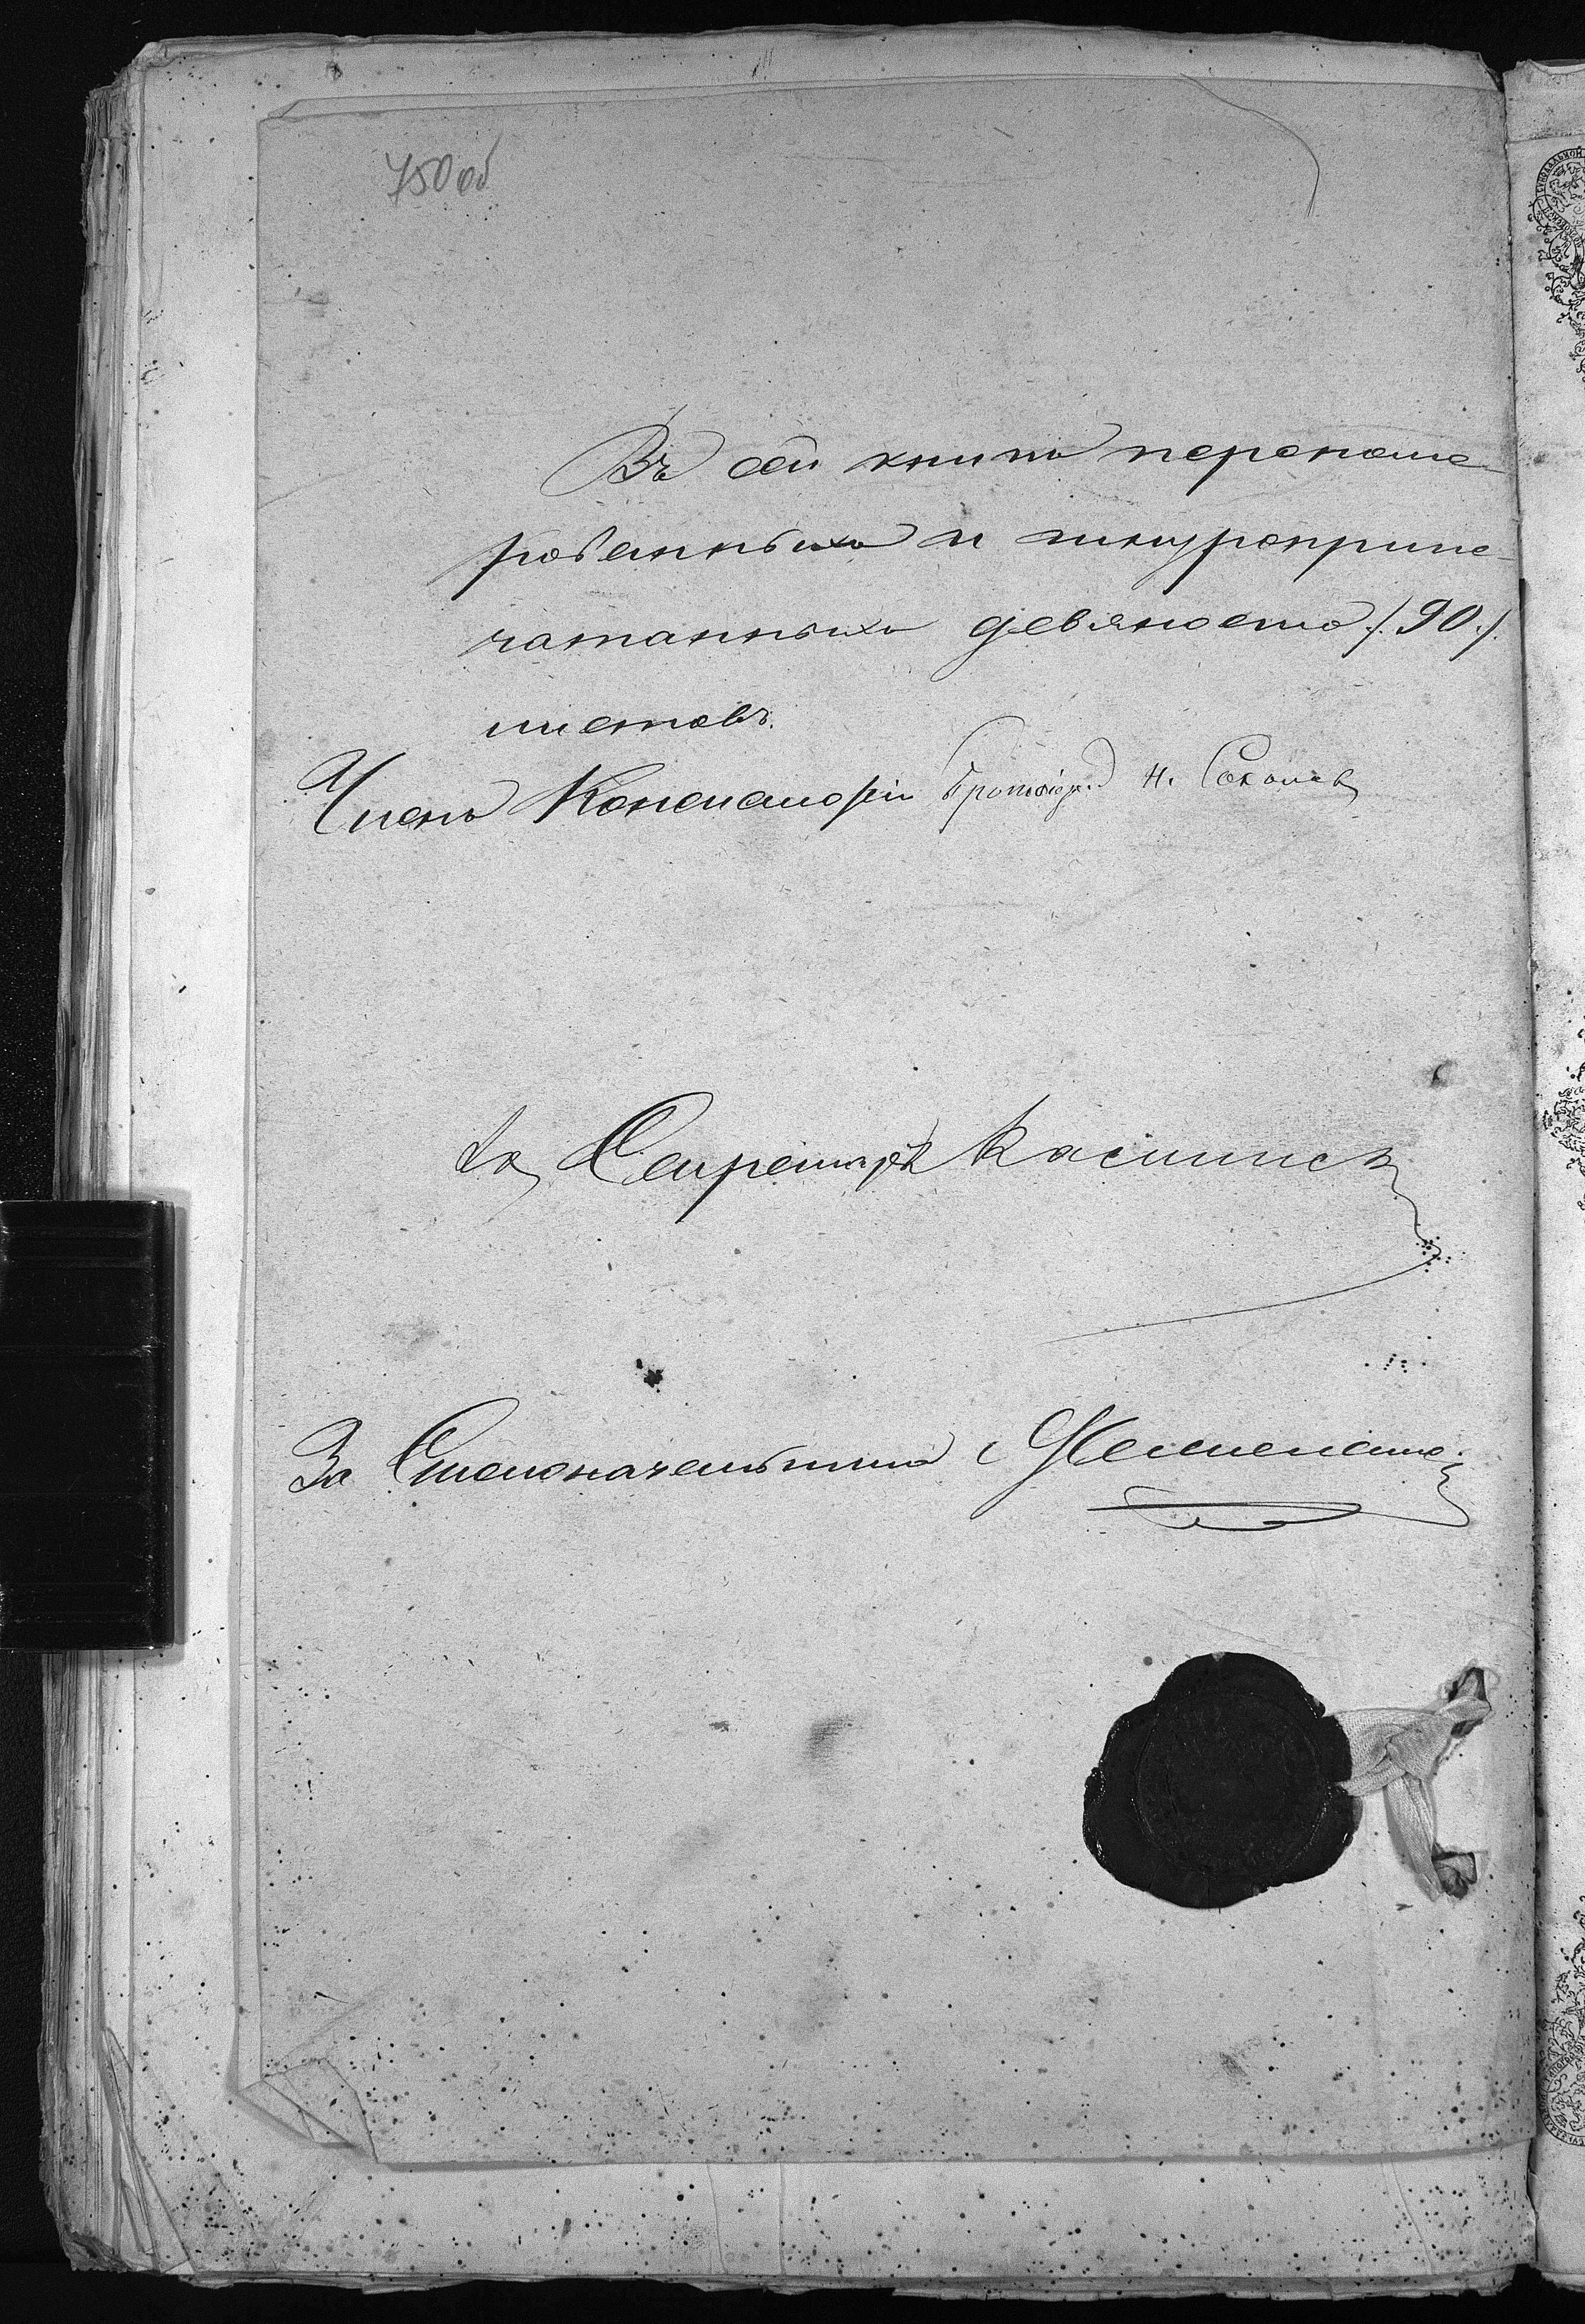 750 об
Въ сей книгѣ перенуме-
рованныхъ и шнуроприпе-
чатанныхъ девяносто /90/
листовъ.
Членъ Консисторіи Протоіер. Н. Соколовъ
Секретарь
За Столоначальника